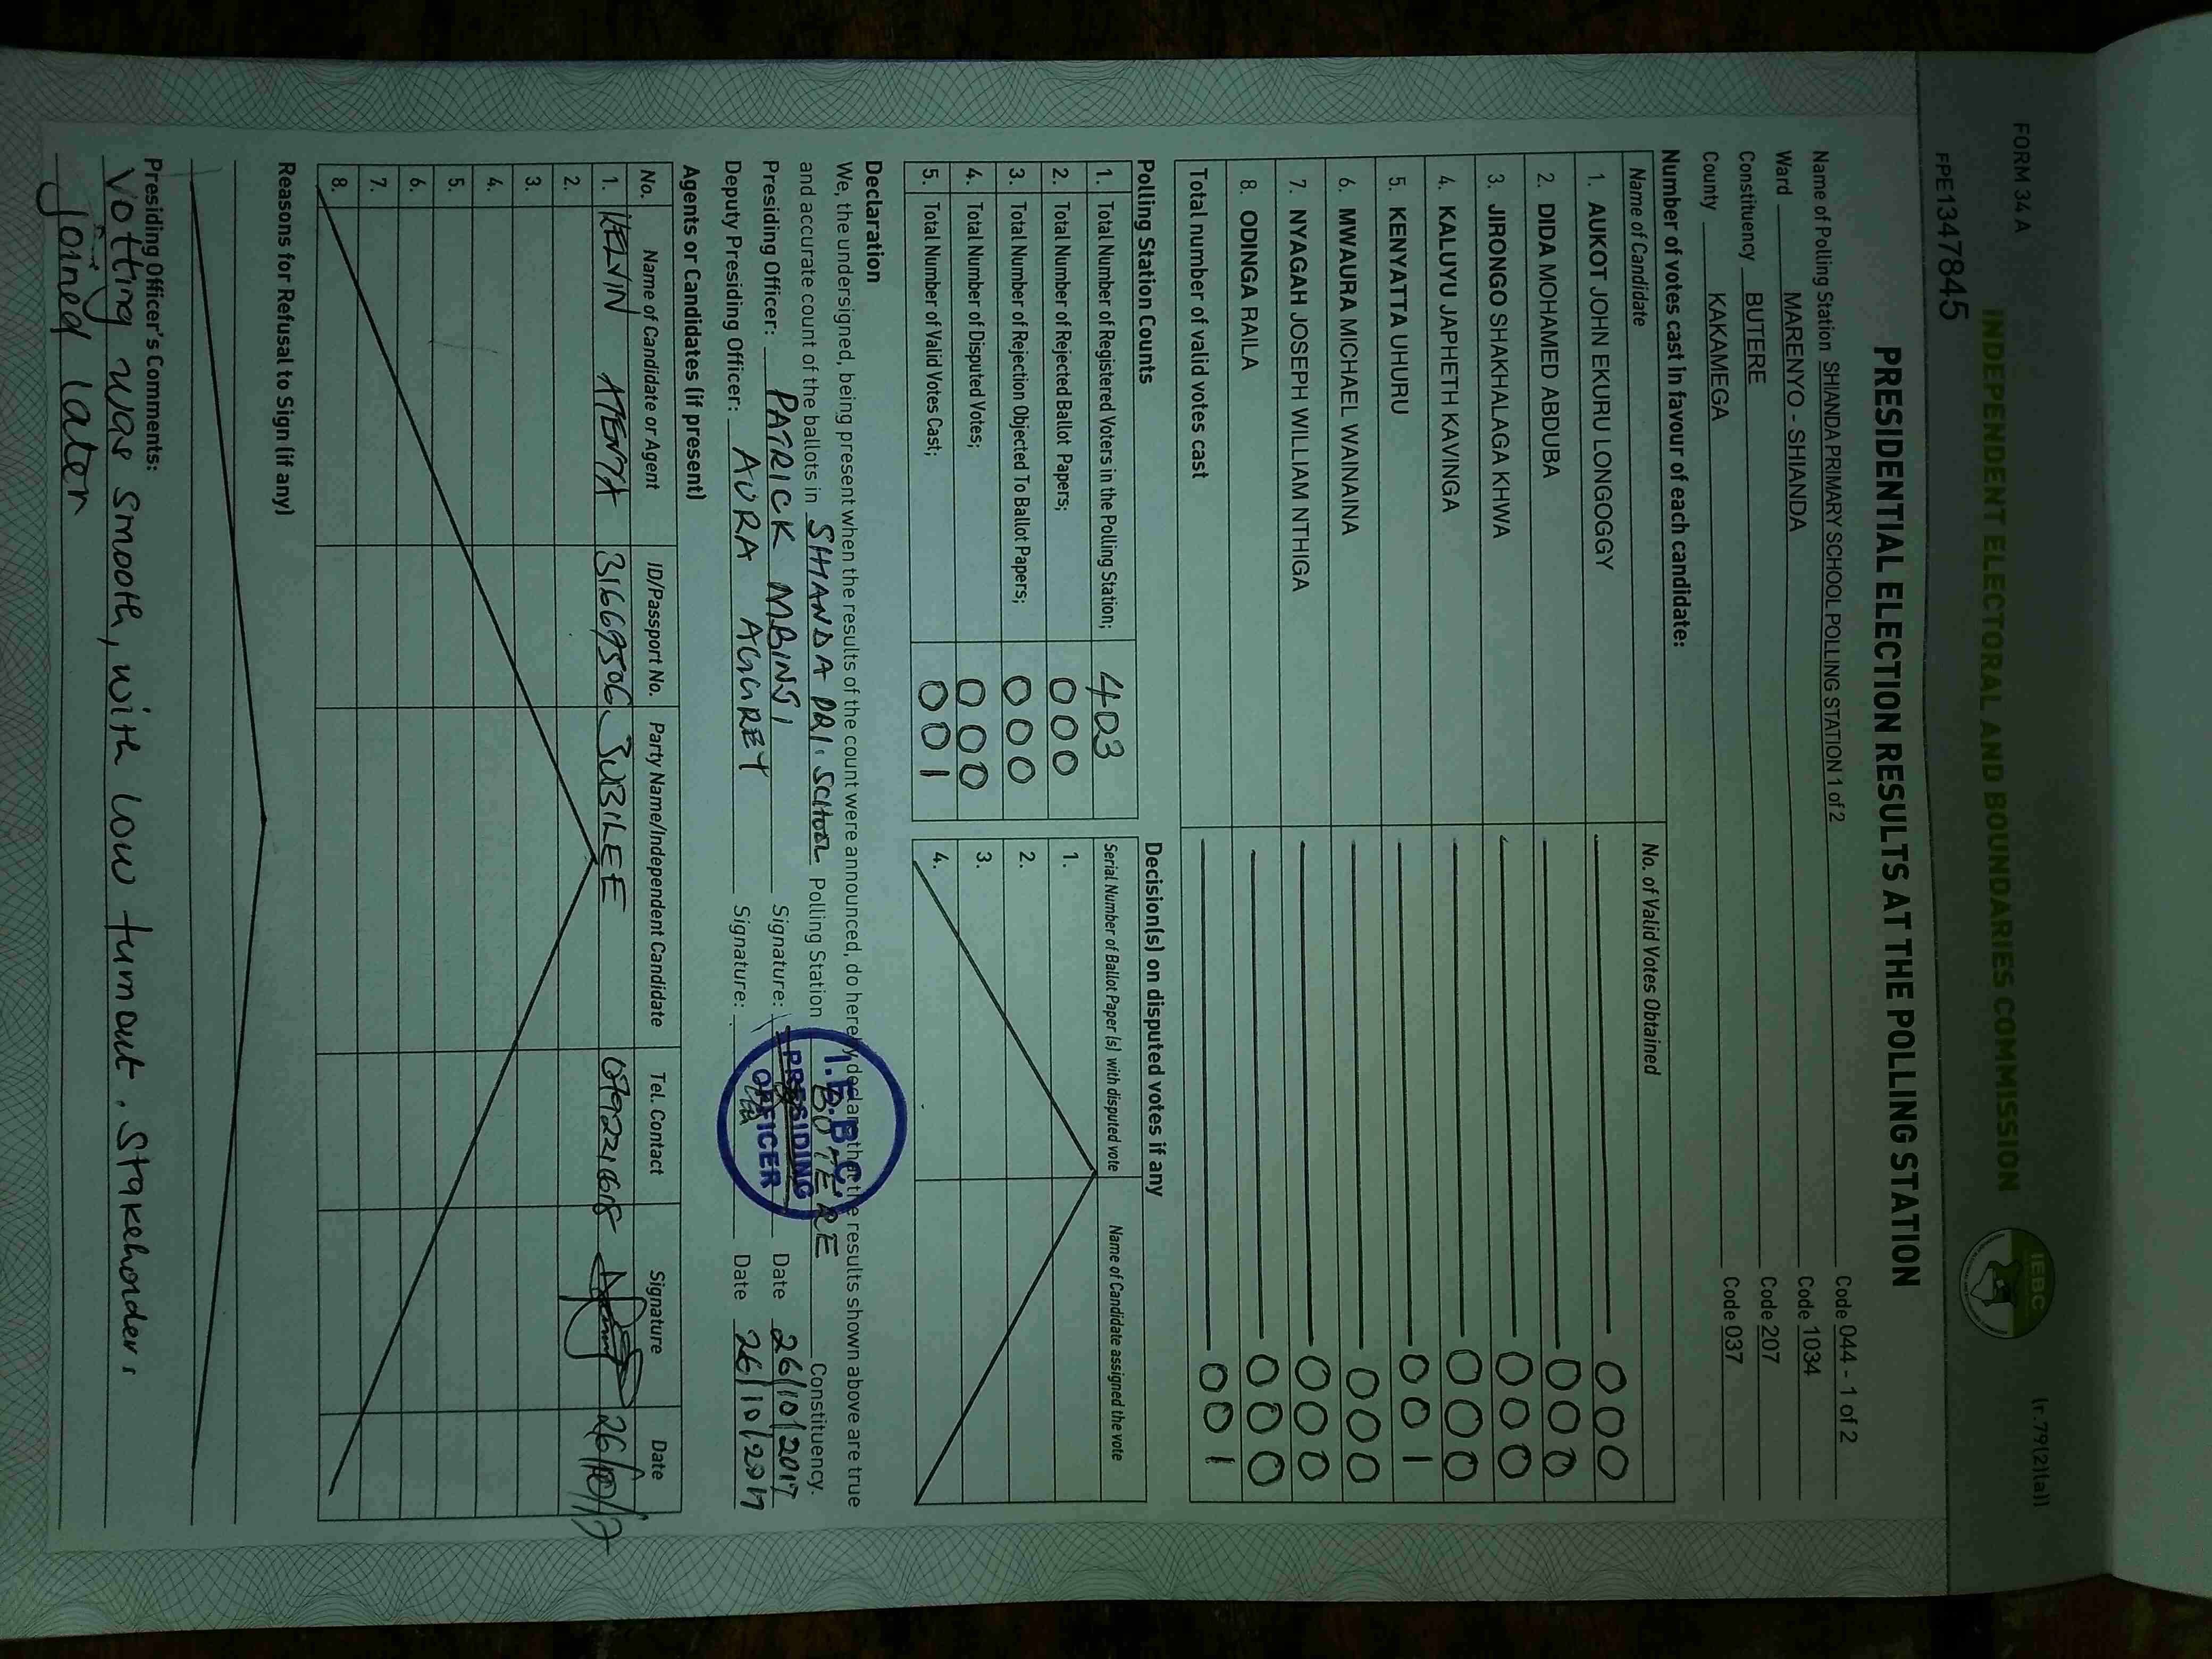 FORM 34 A
(r.79(2)(a))
INDEPENDENT ELECTORAL AND BOUNDARIES COMMISSION
IEBC
FPE1347845
PRESIDENTIAL ELECTION RESULTS AT THE POLLING STATION
Name of Polling Station SHIANDA PRIMARY SCHOOL POLLING STATION 1 of 2 Code 044 - 1 of 2
Ward MARENYO - SHIANDA Code 1034
Constituency BUTERE Code 207
County KAKAMEGA Code 037
Number of votes cast in favour of each candidate:
Name of Candidate No. of Valid Votes Obtained
1. AUKOT JOHN EKURU LONGOGGY 000
2. DIDA MOHAMED ABDUBA 000
3. JIRONGO SHAKHALAGA KHWA 000
4. KALUYU JAPHETH KAVINGA 000
5. KENYATTA UHURU 001
6. MWAURA MICHAEL WAINAINA 000
7. NYAGAH JOSEPH WILLIAM NTHIGA 000
8. ODINGA RAILA 000
Total number of valid votes cast 001
Polling Station Counts
1. Total Number of Registered Voters in the Polling Station; 403
2. Total Number of Rejected Ballot Papers; 000
3. Total Number of Rejection Objected To Ballot Papers; 000
4. Total Number of Disputed Votes; 000
5. Total Number of Valid Votes Cast; 001
Decision(s) on disputed votes if any
Serial Number of Ballot Paper (s) with disputed vote Name of Candidate assigned the vote
1.
2.
3.
4.
Declaration
We, the undersigned, being present when the results of the count were announced, do hereby declare that the results shown above are true
and accurate count of the ballots in SHIANDA PRI. SCHOOL Polling Station BUTERE Constituency.
Presiding Officer: PATRICK MBINSI Signature: Date 26/10/2017
Deputy Presiding Officer: AURA AGGREY Signature: Date 26/10/2017
I.E.B.C.
PRESIDING
OFFICER
Agents or Candidates (if present)
No. Name of Candidate or Agent ID/Passport No. Party Name/Independent Candidate Tel. Contact Signature Date
1. KELVIN 31669506 JUBILEE 26/10/17
2.
3.
4.
5.
6.
7.
8.
Reasons for Refusal to Sign (if any)
Presiding Officer's Comments:
Votting was smooth, with low turnout. Stakeholders
joined later